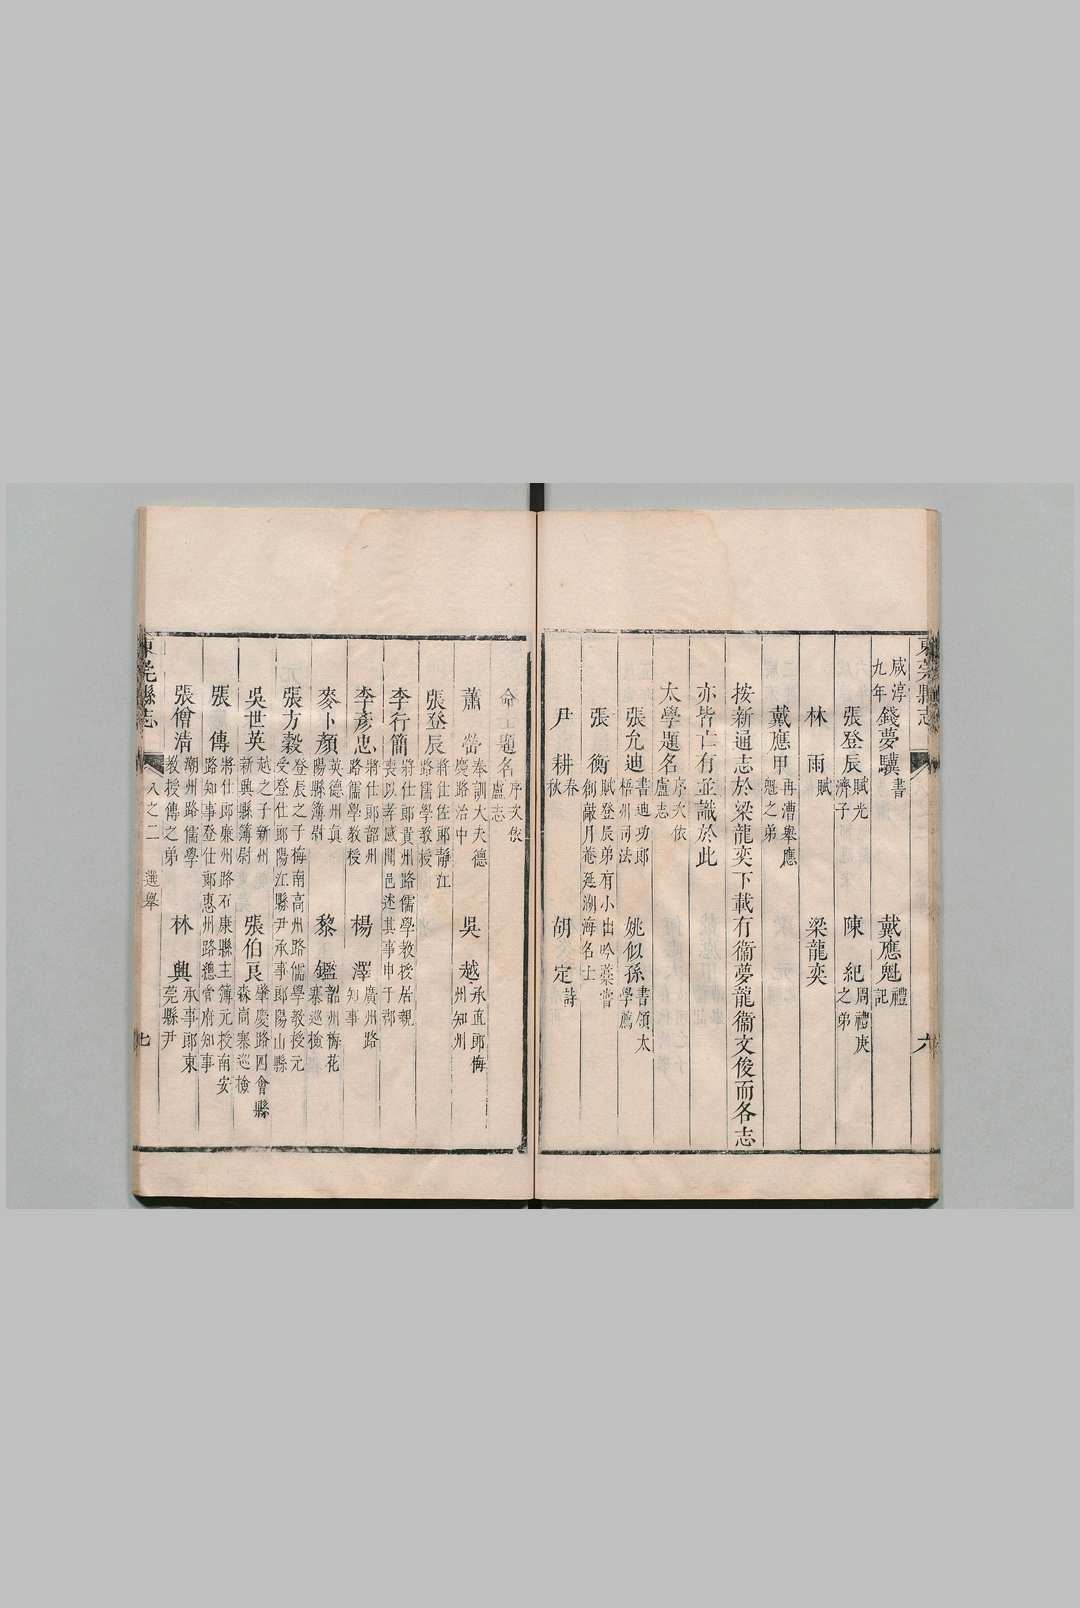 東莞縣志
六
咸淳九年錢夢驥書 戴應魁禮記
張登辰賦光濟子 陳紀周禮庚之弟
林雨賦 梁龍奕
戴應甲再漕舉應魁之弟
按新通志於梁龍奕下載有衞夢龍衞文俊而各志
亦皆亡有並識於此
太學題名序次依盧志
張允迪書迪功郎梧州司法 姚似孫書領太學薦
張衡賦登辰弟有小出吟藥嘗創敲月菴延湖海名士
尹耕春秋 胡定詩
命士題名序次依盧志
蕭㽦奉訓大夫德慶路治中 吳越承直郎梅州知州
張登辰將仕佐郎靜江路儒學教授
李行簡將仕郎貴州路儒學教授居親喪以孝感聞邑述其事申于部
李彥忠將仕郎韶州路儒學教授 楊澤廣州路知事
麥卜顏英德州眞陽縣簿尉 黎鑑韶州梅花寨巡檢
張方榖登辰之子梅南高州路儒學教授元受登仕郎陽江縣尹承事郎陽山縣
吳世英越之子新州新興縣簿尉 張伯良肇慶路四會縣森岡寨巡檢
張傳將仕郎廉州路石康縣主簿元授南安路知事登仕郎惠州路總管府知事
張僧清潮州路儒學教授傳之弟 林興承事郎東莞縣尹
東莞縣志
八之二 選舉
七